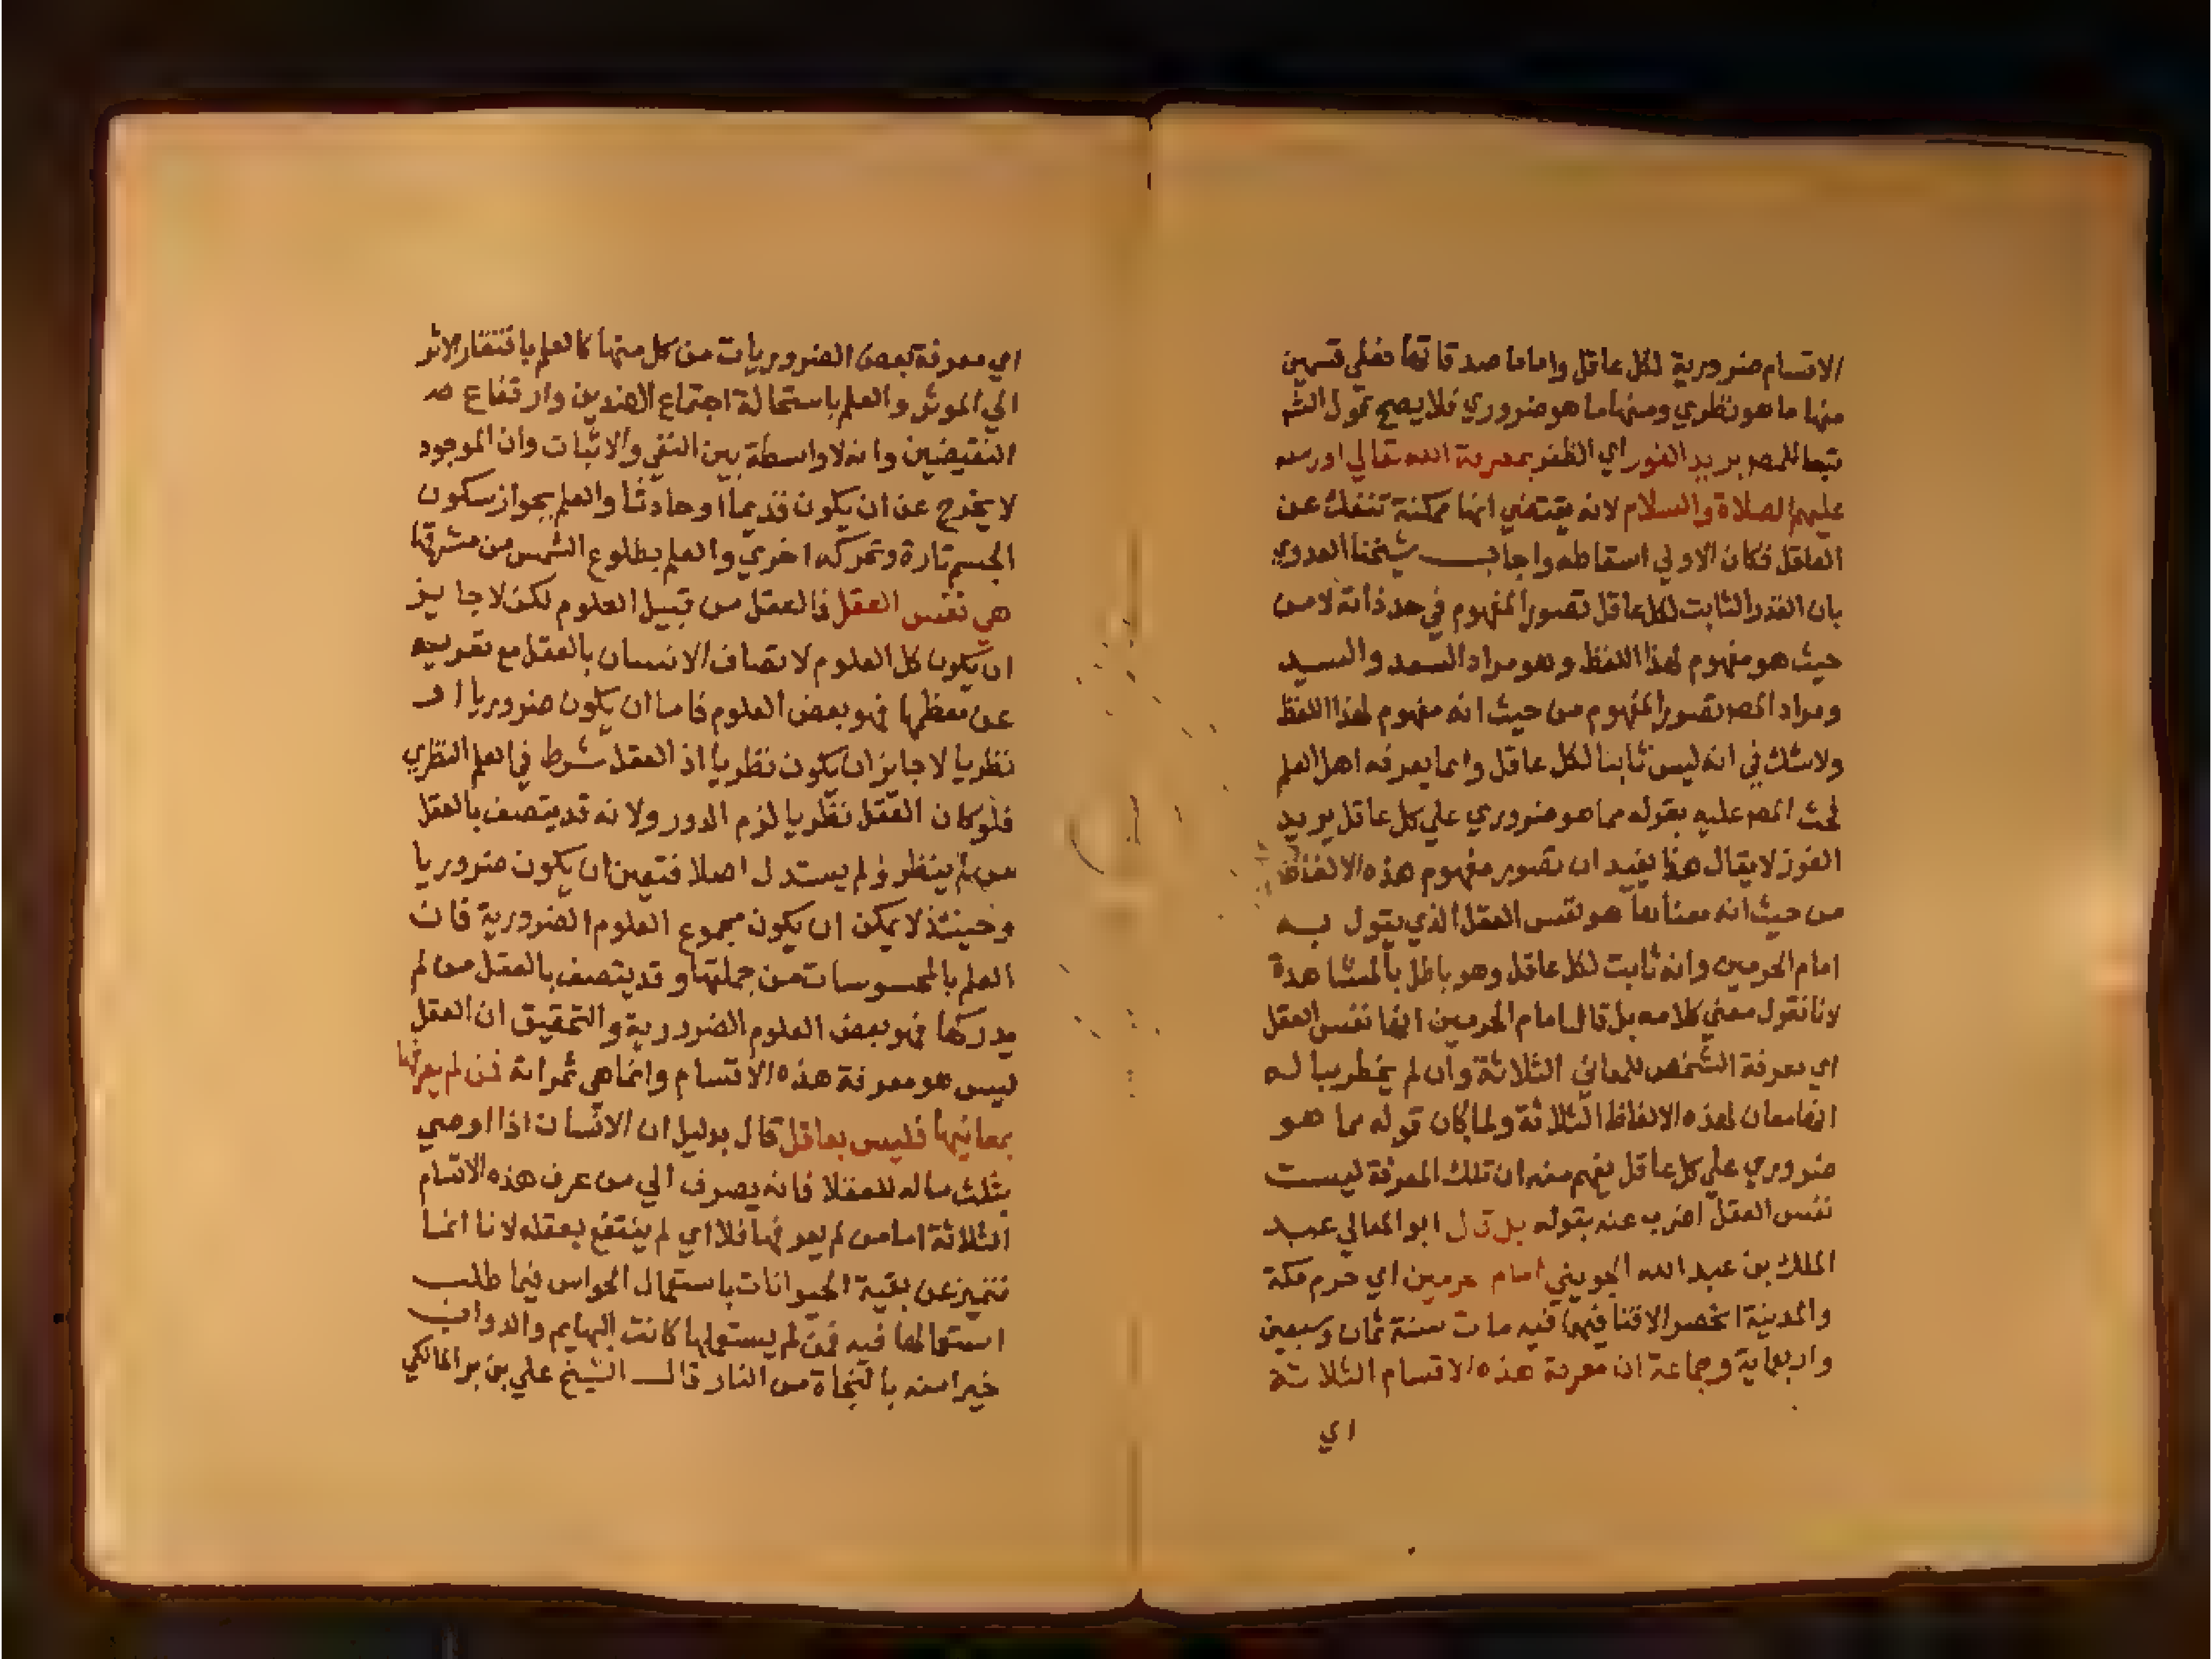 الاقسام ضرورية لكل عاقل واما ما صدقاتها فعلي قسمين
منها ما هو نظري ومنها ما هو ضروري فلا يصح قول الشم
تبعا للمصم يريد الفوز اي الظفر بمعرفة الله تعالي اورسله
عليهم الصلاة والسلام لانه يقتضي انها ممكنة تنفك عن
العاقل فكان الاولي اسقاطه واجاب شيخنا العدوي
بان القدر الثابت لكل عاقل تصور المفهوم في حد ذاته لا من
حيث هو مفهوم لهذا اللفظ وهو مراد السعد والسيد
ومراد المصم تصور المفهوم من حيث انه مفهوم لهذا اللفظ
ولا شك في انه ليس ثابتا لكل عاقل وانما يعرفه اهل العلم
فحث المصم عليه بقوله مما هو ضروري علي كل عاقل يريد
الفوز لا يقال هذا يفيد ان تصور مفهوم هذه الالفاظ
من حيث انه معناها هو نفس العقل الذي يقول به
امام الحرمين وانه ثابت لكل عاقل وهو باطل بالمشاهدة
لانا نقول معني كلامه بل قال امام الحرمين انها نفس العقل
اي معرفة الشخص للمعاني الثلاثة وان لم يخطر ببا له
انها معان لهذه الالفاظ الثلاثة ولما كان قوله مما هو
ضروري علي كل عاقل يفهم منه ان تلك المعرفة ليست
نفس العقل اضرب عنه بقوله بل قال ابو المعالي عبد
الملك بن عبد الله الجويني امام حرمين اي حرم مكة
والمدينة انحصر الافتا فيهما فيه مات سنة ثمان وسبعين
واربعماية وجماعة ان معرفة هذه الاقسام الثلاثة
اي
اي معرفة بعض الضروريات من كل منها كالعلم بافتقار الاثر
الي الموثر والعلم باستحالة اجتماع الضدين وارتفاع
النقيضين وانه لا واسطة بين النفي والاثبات وان الموجود
لا يخرج عن ان يكون قديما او حادثا والعلم بجواز سكون
الجسم تارة وتحركه اخري والعلم بطلوع الشمس من مشرقها
هي نفس العقل فالعقل من قبيل العلوم لكن لا جايز
ان يكون كل العلوم لاتصاف الانسان بالعقل مع تعريه
عن معظمها فهو بعض العلوم فاما ان يكون ضروريا او
نظريا لا جايز ان يكون نظريا اذ العقل شرط في العلم النظري
فلو كان العقل نظريا لزم الدور ولانه قد يتصف بالعقل
من لم ينظر ولم يستدل اصلا فتعين ان يكون ضروريا
وحينئذ لا يمكن ان يكون مجموع العلوم الضرورية فان
العلم بالمحسوسات من جملتها وقد يتصف بالعقل من لم
يدركها فهو بعض العلوم الضرورية والتحقيق ان العقل
ليس هو معرفة هذه الاقسام وانما هي ثمراته فمن لم يعرفها
بمعانيها فليس بعاقل قال بدليل ان الانسان اذا اوصي
بثلث ماله للعقلا فانه يصرف الي من عرف هذه الاقسام
الثلاثة اما من لم يعرفها فلا اي لم ينتفع بعقله لانا انما
نتميز عن بقية الحيوانات باستعمال الحواس فيما طلب
استعمالها فيه فمن لم يستعملها كانت البهايم والدواب
خيرا منه بالنجاة من النار قال الشيخ علي بن بر المالكي